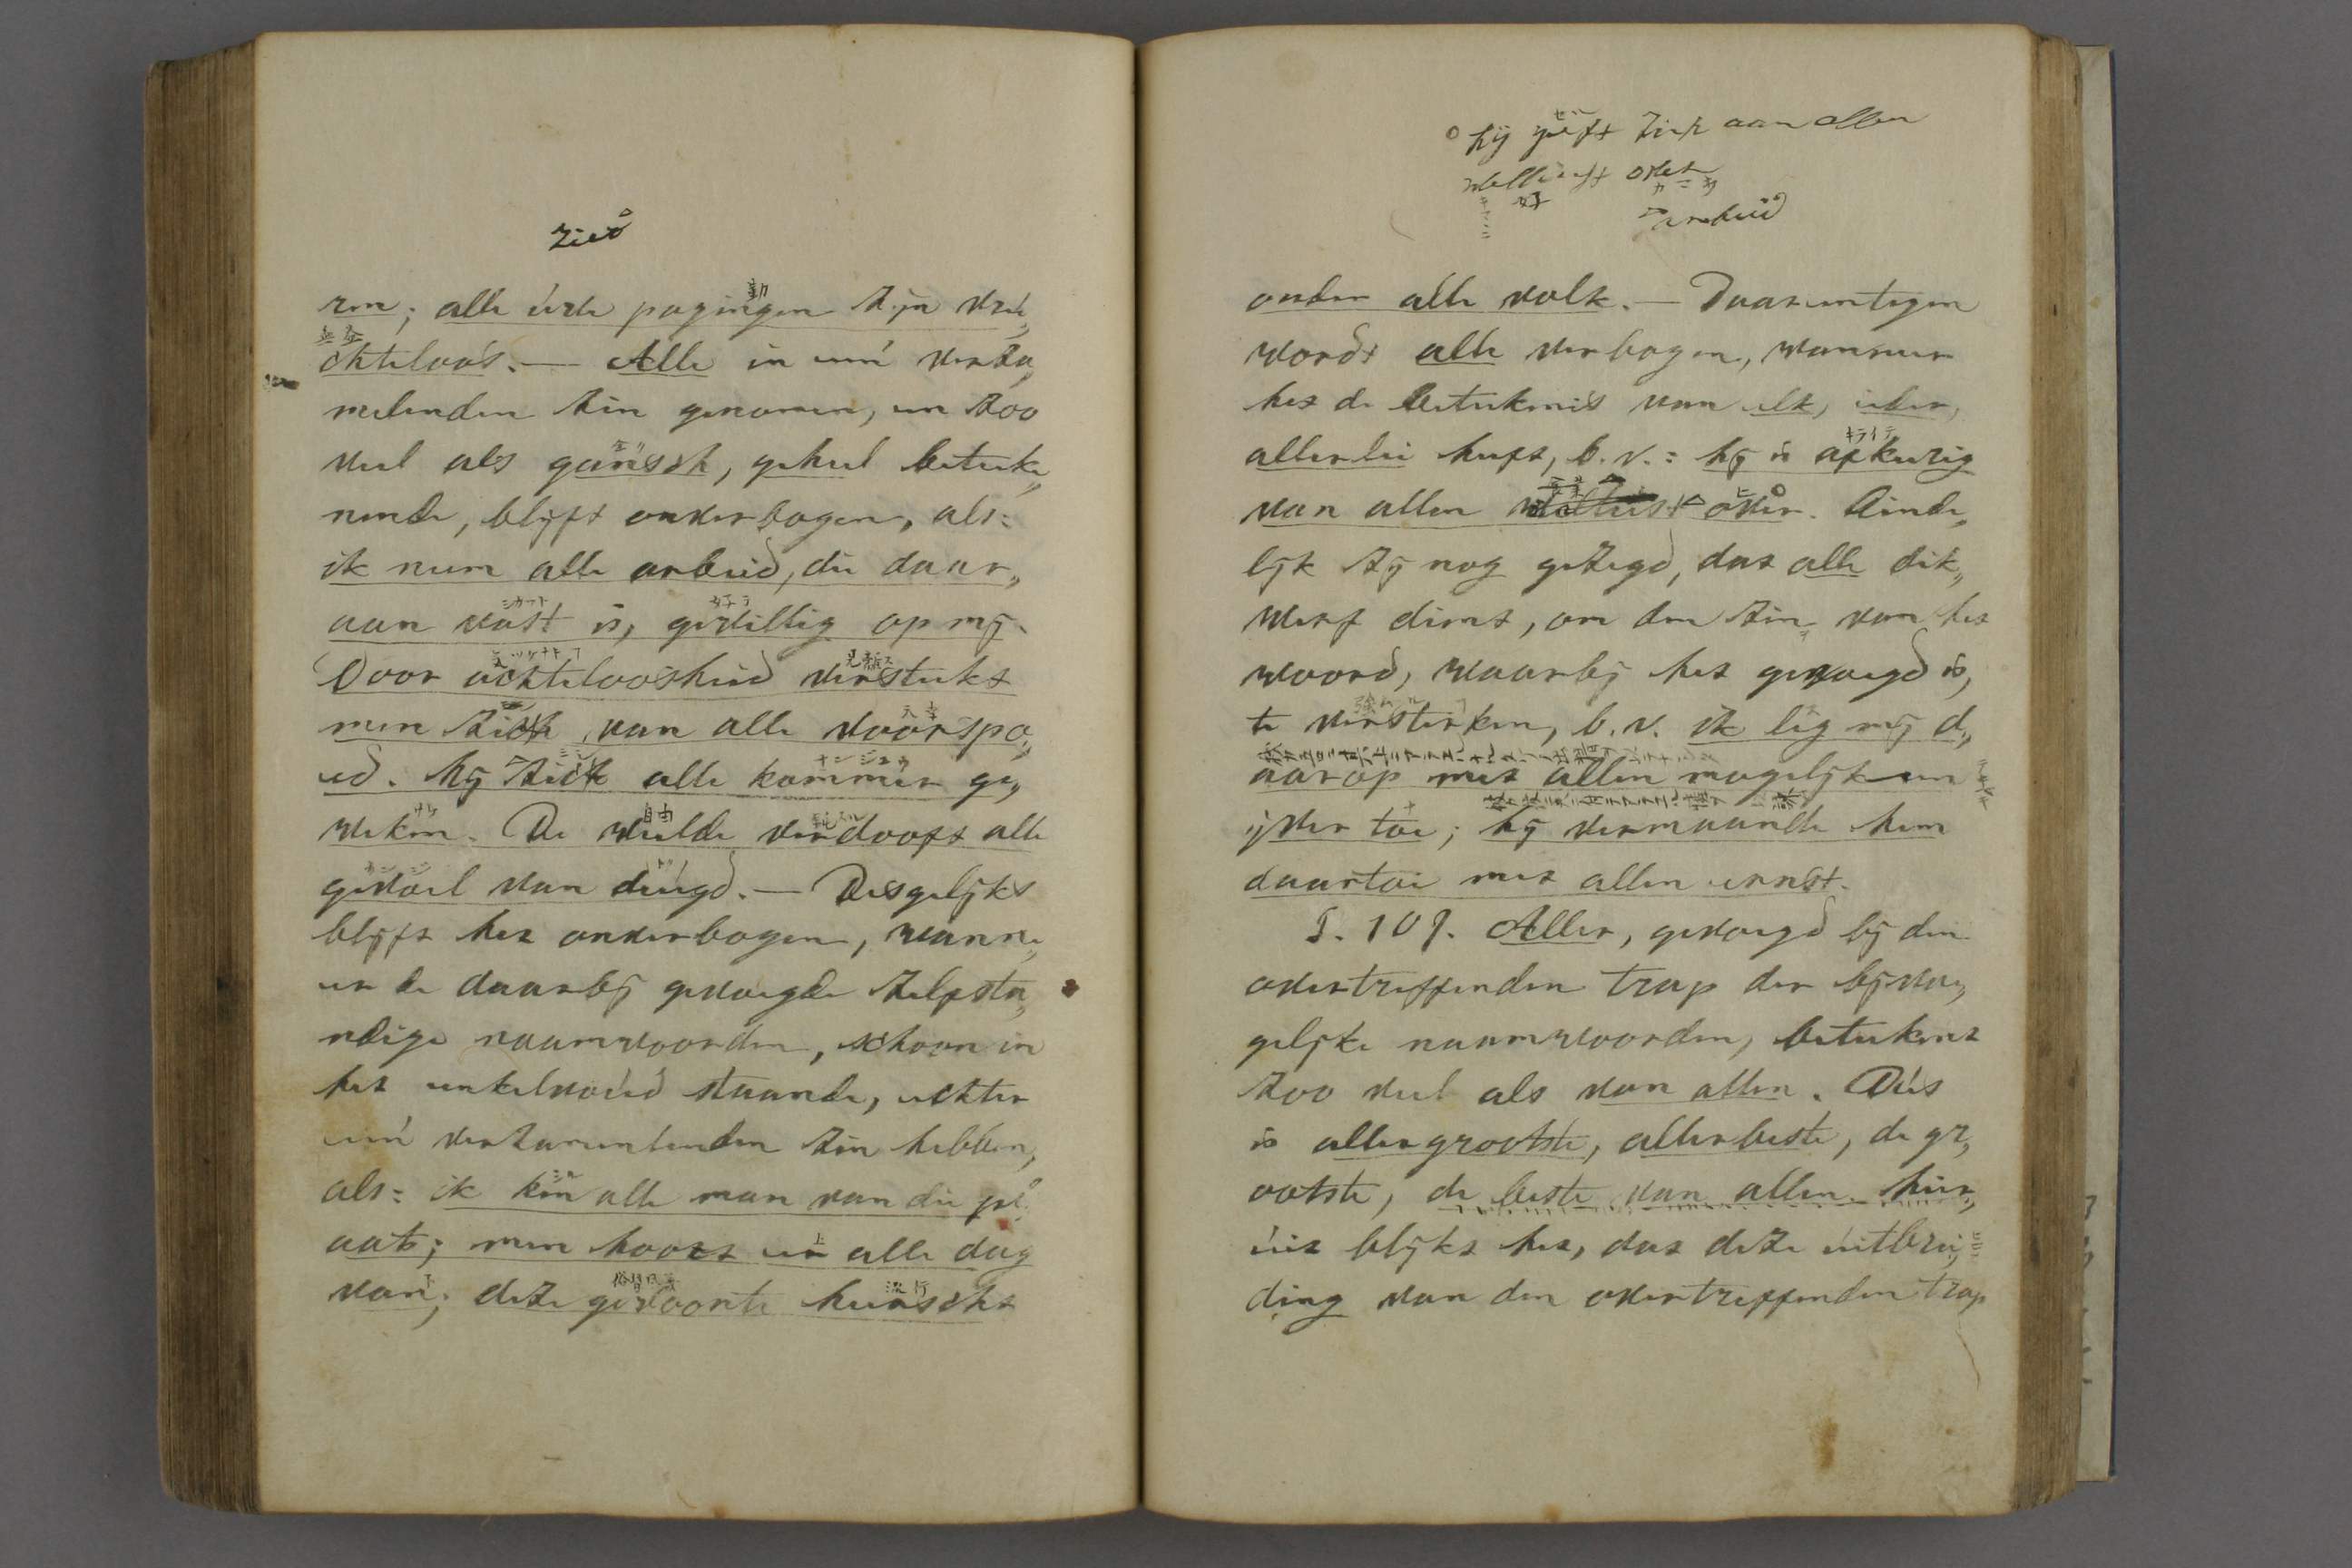 ziet
ren; alle uwe pogingen zijn vru„
chteloos. — Alle in een' verza„
melenden zin genomen, en zoo
veel als gansch, geheel beteeke„
nende, blijft onverbogen, als:
ik neem alle arbeid, die daar„
aan vast is, gewillig op mij.
Door achteloosheid versteekt
men zich van alle voorspo„
ed. hij zich alle kommer ge„
weken. De weelde verdooft alle
gevoel van deugd. — Desgelijks
blijft het onverbogen, wanne„
er de daarbij gevoegde zelfsta„
ndige naamwoorden, schoon in
het enkelvoud staande, echter
een' verzamelenden zin hebben,
als: ik ken alle man van die pl„
aats; men hoort er alle dag
van; deze gewoonte heerscht
hij geeft zich aan allen
wellust over
arbeid
onder alle volk. — Daarentegen
wordt alle verbogen, wanneer
het de beteekenis van elk, ieder,
allerlei heeft, b. v.: hij is afkeerig
キライテ
van allen wellust over. Einde„
lijk zij nog gezegd, dat alle dik„
werf dient, om den zin van het
woord, waarbij het gevoegd is,
te versterken, b. v. ik leg mij d„
aarop met allen mogelijken
ijver toe; hij vermaande hem
daartoe met allen ernst.
§. 107. Aller, gevoegd bij den
overtreffenden trap der bijvoe„
gelijke naamwoorden, beteekent
zoo veel als van allen. Dus
is allergrootste, allerbeste, de gr„
ootste, de beste van allen. hier„
uit blijkt het, dat deze uitbrei„
ding van den overtreffenden trap